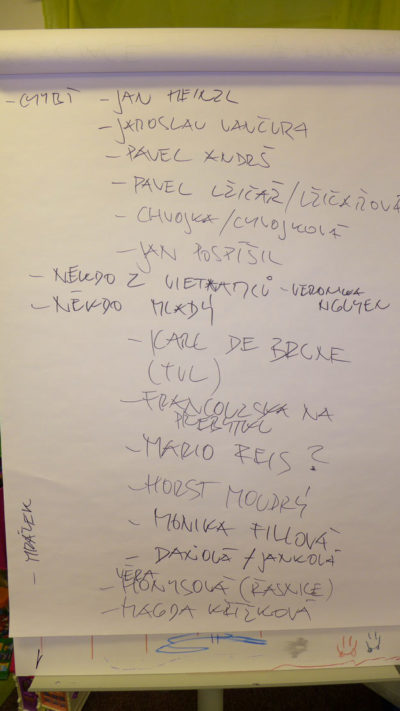 - CHYBÍ - JAN HEINZL
- JAROSLAV VANČURA
- PAVEL ANDRŠ
- PAVEL LŽIČAŘ/LŽIČAŘOVÁ
- CHVOJKA/CHVOJKOVÁ
- JAN POSPÍŠIL
- NĚKDO Z VIETNAMCŮ - VERONIKA NGUYEN
- NĚKDO MLADÝ
- KAREL DE BRUNE
(TUL)
- FRANCOUZSKA NA
PŘEBYTKU
- MARIO REIS ?
- HORST MOUDRÝ
- MONIKA FILLOVÁ
- DAXIOVÁ / JANKOVÁ
VĚRA
- HONYSOVÁ (RASNICE)
- MAGDA KŘÍŽKOVÁ
- MRÁZEK